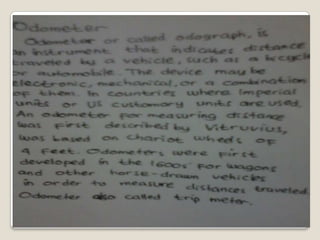 Odometer
Odometer or called odograph, is
an instrument that indicates distance
traveled by a vehicle, such as a bicycle
or automobile. The device may be
electronic, mechanical, or a combination
of them. In countries where Imperial
units or US customary units are used.
An odometer for measuring distance
was first described by Vitruvius,
was based on chariot wheels of
4 feet. Odometers were first
developed in the 1600s for wagons
and other horse-drawn vehicles
in order to measure distances traveled.
Odometer also called trip meter.